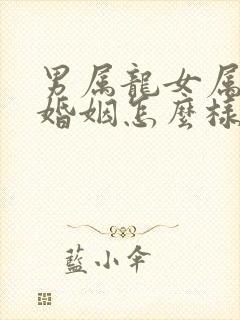 男属龍女属
婚姻怎麼様
藍小伞